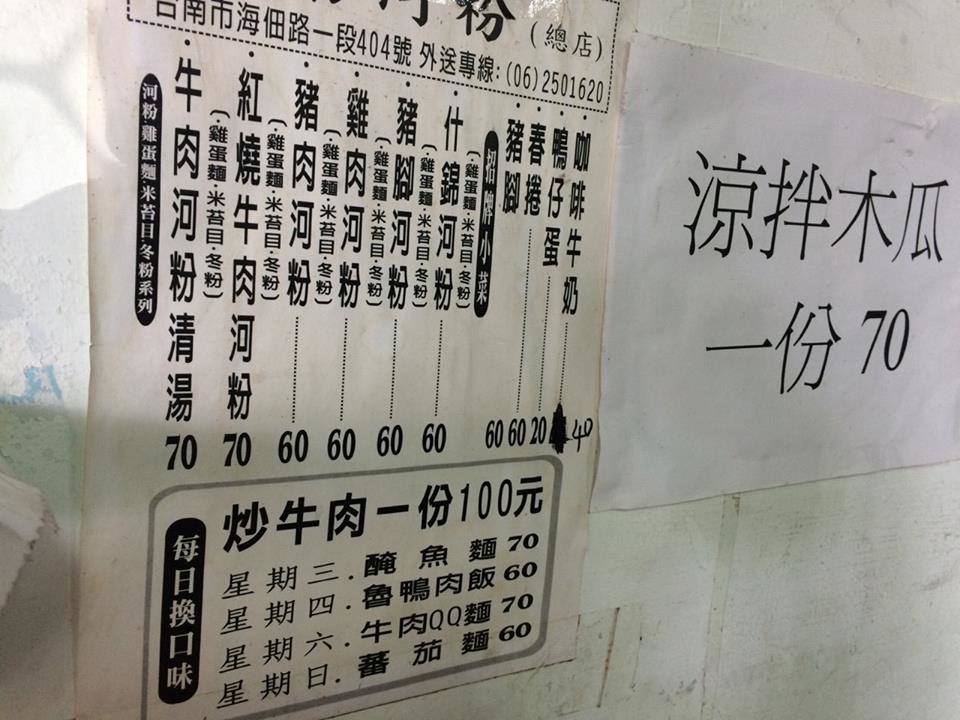 河粉
(總店)
台南市海佃路一段404號 外送專線:(06)2501620
河粉.雞蛋麵.米苔目.冬粉系列
·牛肉河粉清湯 70
·紅燒牛肉河粉 70
(·雞蛋麵·米苔目·冬粉)
·豬肉河粉 60
(·雞蛋麵·米苔目·冬粉)
·雞肉河粉 60
(·雞蛋麵·米苔目·冬粉)
·豬腳河粉 60
(·雞蛋麵·米苔目·冬粉)
·什錦河粉 60
(·雞蛋麵·米苔目·冬粉)
(·雞蛋麵·米苔目·冬粉)
招牌小菜
·豬腳 60
·春捲 60
·鴨仔蛋 20
·咖啡牛奶 40
每日換口味
炒牛肉一份100元
星期三.醃魚麵 70
星期四.魯鴨肉飯 60
星期六.牛肉QQ麵 70
星期日.蕃茄麵 60
涼拌木瓜
一份 70